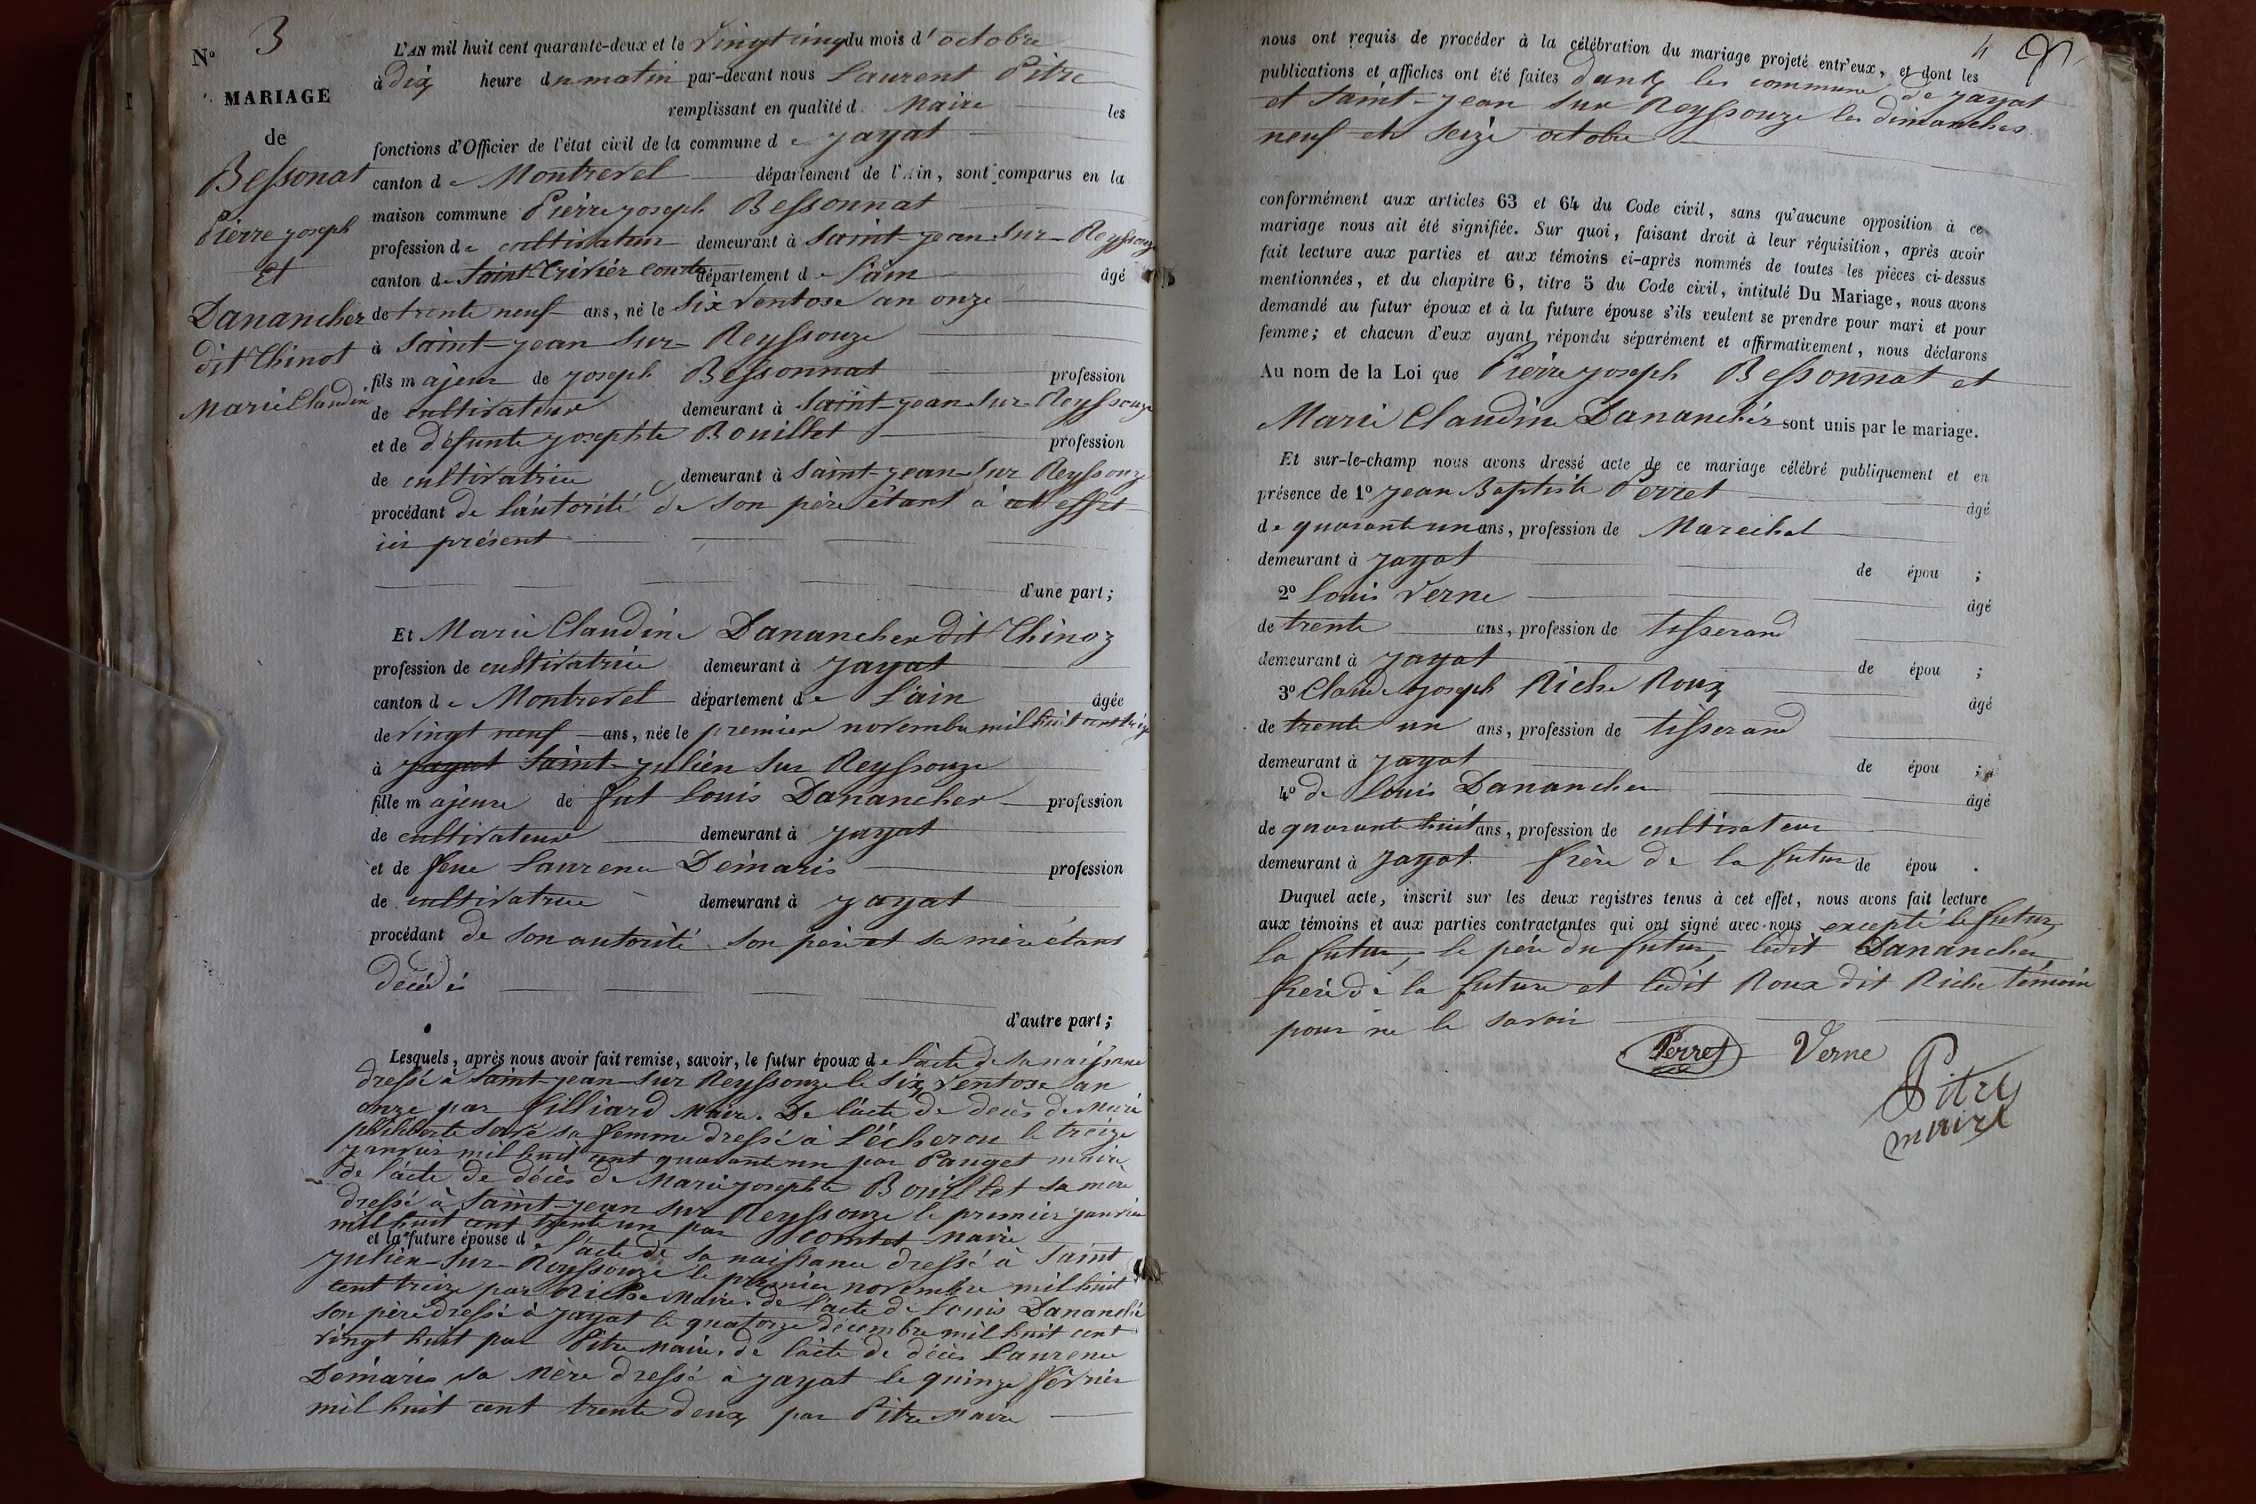 N° 3
MARIAGE
de
Bessonat
Pierre joseph
et
Dananchez
dit Chinot
Marie Claudin
L'AN mil huit cent quarante-deux et le vingt cinq du mois d'octobre
à dix heure du matin par-devant nous Laurent Pitre
remplissant en qualité d Maire les
fonctions d'Officier de l'état civil de la commune de jayat
canton de Montrevel département de l'Ain, sont comparus en la
maison commune Pierre joseph Bessonnat
profession de cultivateur demeurant à Saint-jean-Sur-Reyssouze
canton de Saint-Trivier Courtes département de l'ain âgé
de trente neuf ans, né le six ventose an onze
à Saint-jean-Sur-Reyssouze
fils majeur de joseph Bessonnat profession
de cultivateur demeurant à Saint-jean-Sur-Reyssouze
et de défunte josephte Bouillot profession
de cultivatrice demeurant à Saint-jean-Sur Reyssouze
procédant de l'autorité de son père étant à cet effet
ici présent
d'une part;
Et Marie Claudine Danancher dit Chinoz
profession de cultivatrice demeurant à jayat
canton de Montrevel département de l'ain âgée
de vingt neuf ans, née le premier novembre mil huit cent treize
à jayat Saint-julien Sur Reyssouze
fille majeure de fut Louis Danancher profession
de cultivateur demeurant à jayat
et de feue Laurence Démaris profession
de cultivatrice demeurant à jayat
procédant de son autorité son père et sa mère étant
décédés
d'autre part;
Lesquels, après nous avoir fait remise, savoir, le futur époux de l'acte de sa naissance
dressé à Saint-jean-Sur Reyssouze le six ventose an
onze par Filliard Maire. De l'acte de décès de Marie
philiberte sa femme dressé à l'écherou le treize
janvier mil huit cent quarante un par Pauget maire
de l'acte de décès de Marie josephte Bouillot sa mère
dressé à Saint-jean Sur Reyssouze le premier janvier
mil huit cent trente un par Comtet Maire
et la future épouse de l'acte de sa naissance dressé à Saint
julien-Sur-Reyssouze le premier novembre mil huit
cent treize par Riche Maire. de l'acte de Louis Dananché
son père dressé à jayat le quatorze décembre mil huit cent
vingt huit par Pitre Maire. de l'acte de décès Laurence
Démaris sa Mère dressé à jayat le quinze février
mil huit cent trente deux par Pitre Maire
4
nous ont requis de procéder à la célébration du mariage projeté entr'eux, et dont les
publications et affiches ont été faites dans les commune de jayat
et Saint-jean Sur Reyssouze les dimanches
neuf et seize octobre
conformément aux articles 63 et 64 du Code civil, sans qu'aucune opposition à ce
mariage nous ait été signifiée. Sur quoi, faisant droit à leur réquisition, après avoir
fait lecture aux parties et aux témoins ci-après nommés de toutes les pièces ci-dessus
mentionnées, et du chapitre 6, titre 5 du Code civil, intitulé Du Mariage, nous avons
demandé au futur époux et à la future épouse s'ils veulent se prendre pour mari et pour
femme; et chacun d'eux ayant répondu séparément et affirmativement, nous déclarons
Au nom de la Loi que Pierre joseph Bessonnat et
Marie Claudine Dananchér sont unis par le mariage.
Et sur-le-champ nous avons dressé acte de ce mariage célébré publiquement et en
présence de 1° jean Baptiste Perret âgé
de quarante un ans, profession de Marechal
demeurant à jayat de épou ;
2° Louis Verne âgé
de trente ans, profession de tisserand
demeurant à jayat de épou ;
3° Claude joseph Riche Roux âgé
de trente un ans, profession de tisserand
demeurant à jayat de épou ;
4° de Louis Dananche âgé
de quarante huit ans, profession de cultivateur
demeurant à jayat frère de la future de épou .
Duquel acte, inscrit sur les deux registres tenus à cet effet, nous avons fait lecture
aux témoins et aux parties contractantes qui ont signé avec nous excepté le futur,
la future, le père du futur, ledit Dananchen
frère de la future et ledit Roux dit Riche témoin
pour ne le savoir
Perret Verne
Pitre
maire